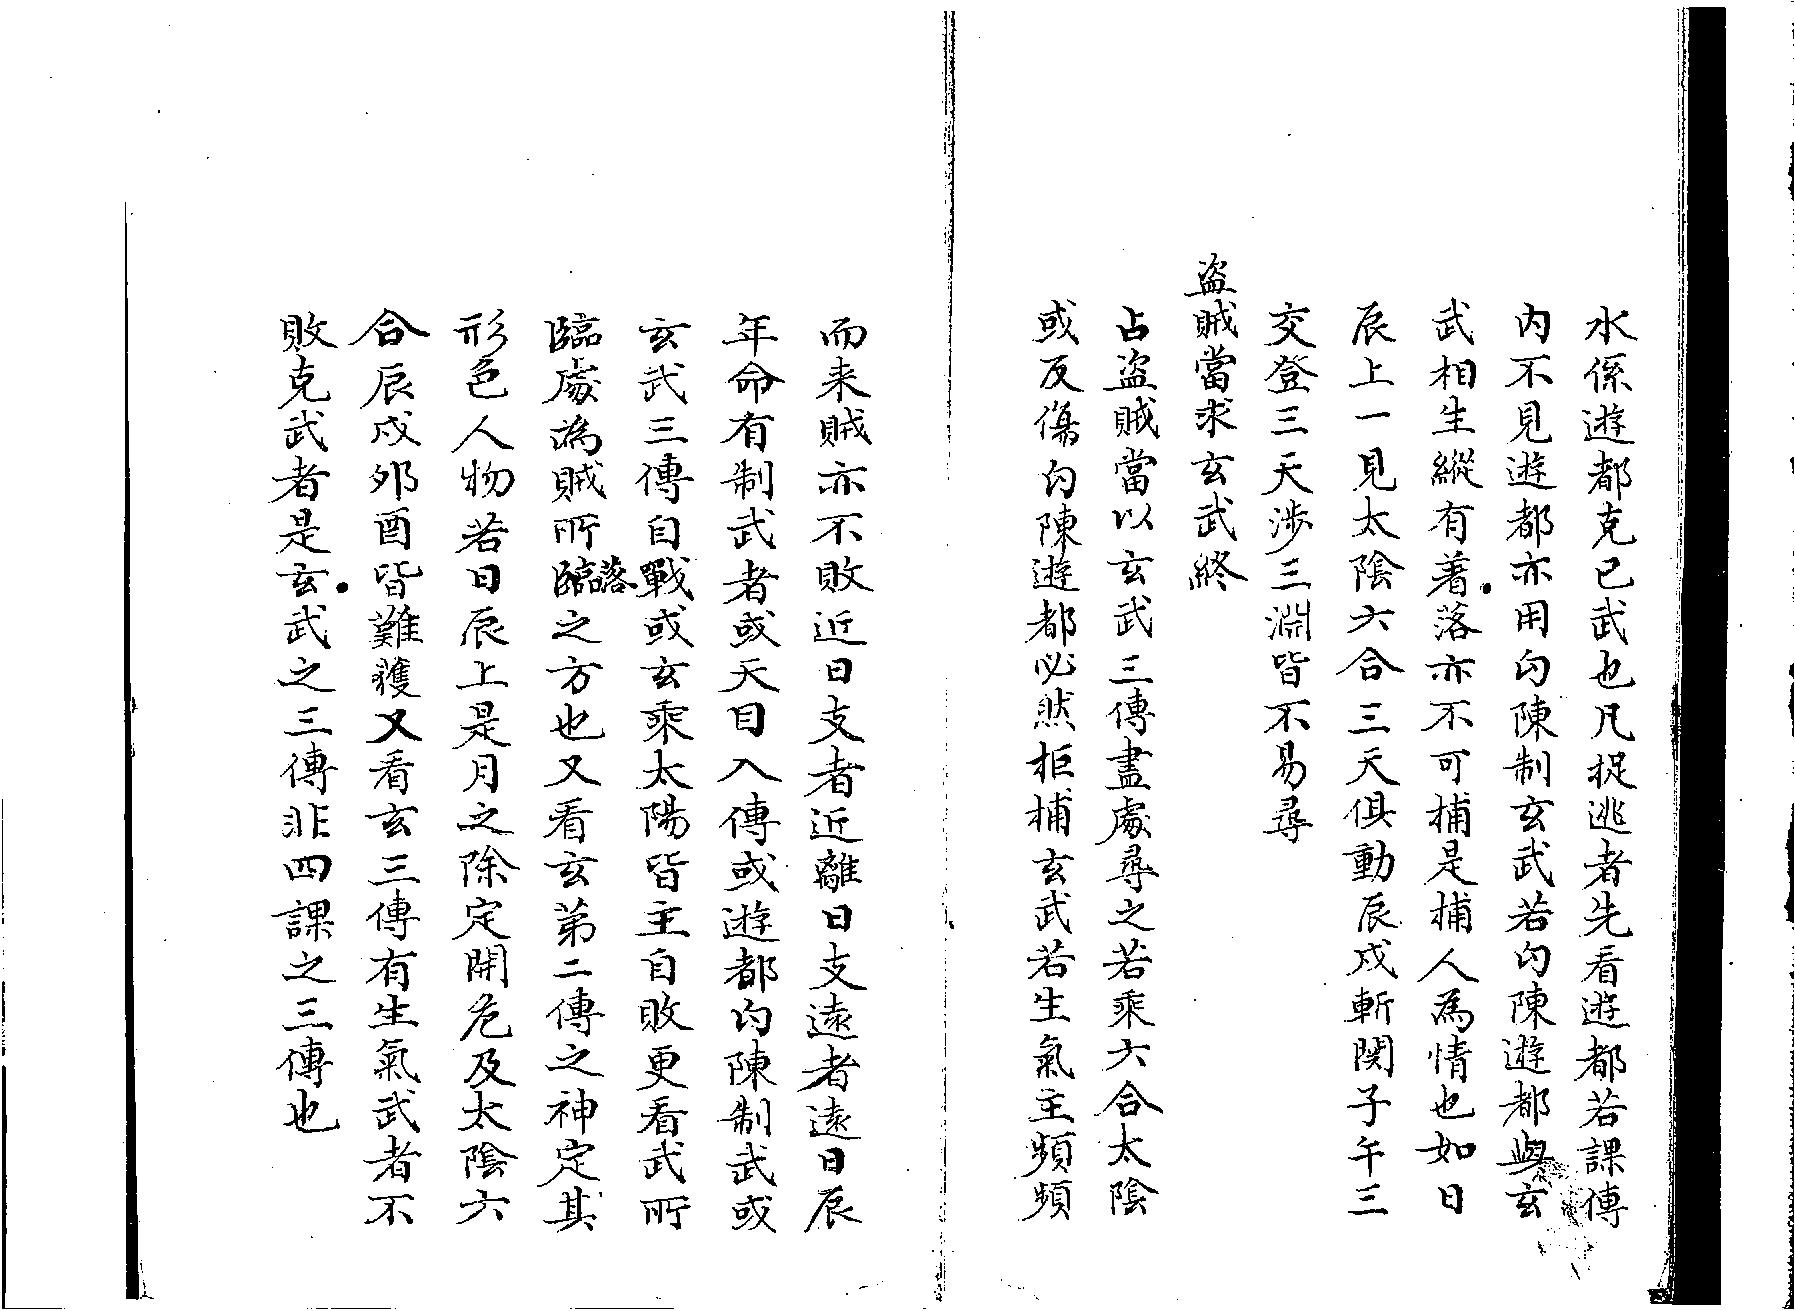 水係遊都克已武也凡捉逃者先看遊都若課傳
内不見遊都亦用勾陳制玄武若勾陳遊都與玄
武相生縱有著落亦不可捕是捕人為情也如日
辰上一見太陰六合三天俱動辰戍斬関子午三
交登三天涉三淵皆不易尋
盜賊當求玄武終
占盜賊當以玄武三傳盡處尋之若乘六合太陰
或反傷勾陳遊都必然拒捕玄武若生氣主頻頻
而来賊亦不敗近日支者近離日支遠者遠日辰
年命有制武者或天目入傳或遊都勾陳制武或
玄武三傳自戰或玄乘太陽皆主自敗更看武所
臨處為賊所臨落之方也又看玄第二傳之神定其
形色人物若日辰上是月之除定開危及太陰六
合辰戍夘酉皆難獲又看玄三傳有生氣武者不
敗克武者是玄武之三傳非四課之三傳也